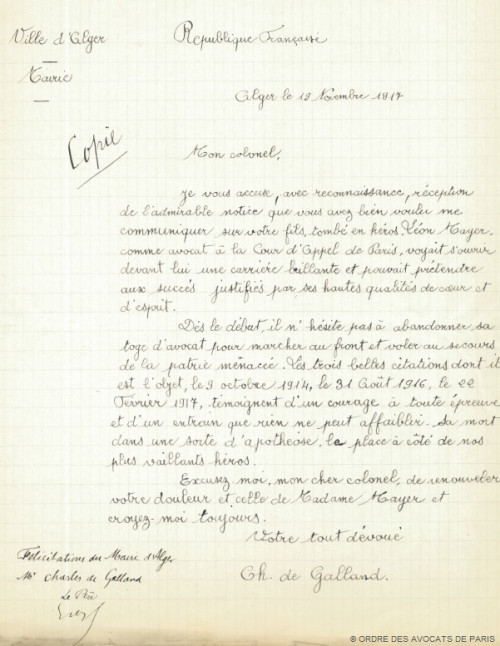 Ville d'Alger
République Française
Mairie
Alger le 12 Novembre 1917
Copie
Mon colonel,
Je vous accuse, avec reconnaissance, réception
de l'admirable notice que vous avez bien voulu me
communiquer sur votre fils, tombé en héros. Léon Mayer,
comme avocat à la Cour d'Appel de Paris, voyait s'ouvrir
devant lui une carrière brillante et pouvait prétendre
aux succès justifiés par ses hautes qualités de cœur et
d'esprit.
Dès le début, il n'hésite pas à abandonner sa
toge d'avocat pour marcher au front et voler au secours
de la patrie menacée. Les trois belles citations dont il
est l'objet, le 9 octobre 1914, le 31 Août 1916, le 22
Février 1917, témoignent d'un courage à toute épreuve
et d'un entrain que rien ne peut affaiblir. Sa mort
dans une sorte d'apothéose, le place à côté de nos
plus vaillants héros.
Excusez-moi, mon cher colonel, de renouveler
votre douleur et celle de Madame Mayer et
croyez-moi toujours.
Votre tout dévoué
Ch. de Galland.
Félicitations du Maire d'Alger
Mr Charles de Galland
© ORDRE DES AVOCATS DE PARIS